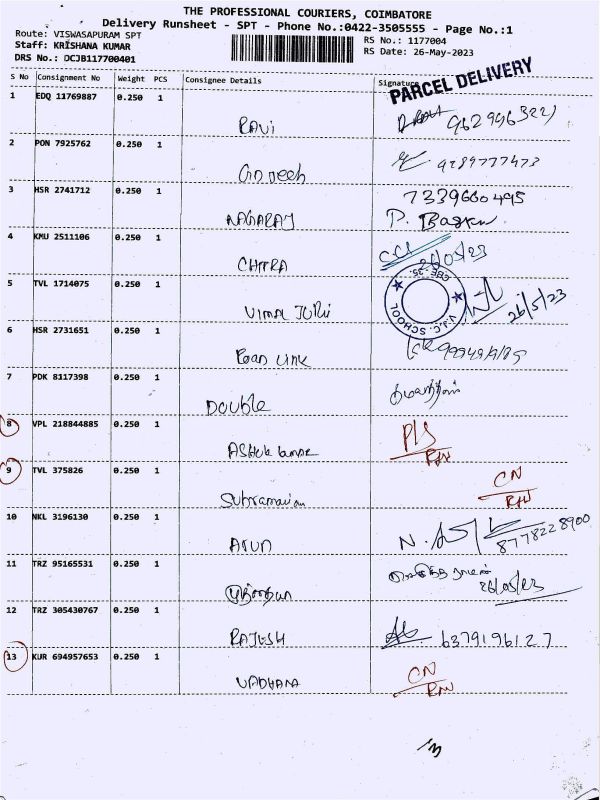 THE PROFESSIONAL COURIERS, COIMBATORE
Delivery Runsheet - SPT - Phone No.:0422-3505555 - Page No.:1
Route: VISWASAPURAM SPT
Staff: KRISHANA KUMAR
DRS No.: DCJB117700401
RS No.: 1177004
RS Date: 26-May-2023
S No Consignment No Weight PCS Consignee Details Signature
PARCEL DELIVERY
1 EDQ 11769887 0.250 1
RAVI
2 PON 7925762 0.250 1
9289777473
3 HSR 2741712 0.250 1
NAGARAJ
7339660495
P. Baskar
4 KMU 2511106 0.250 1
CHITRA
26/05/23
5 TVL 1714075 0.250 1
VIMAL
V.J.C. SCHOOL
CBE-35.
26/5/23
6 HSR 2731651 0.250 1
Link
7 PDK 8117398 0.250 1
DOUBLE
8 VPL 218844885 0.250 1
ASHOK
P/S
9 TVL 375826 0.250 1
Subramanian
CN
10 NKL 3196130 0.250 1
ARUN
8778228900
11 TRZ 95165531 0.250 1
26/05/23
12 TRZ 305430767 0.250 1
RAJESH
6379196127
13 KUR 694957653 0.250 1
VADHANA
CN